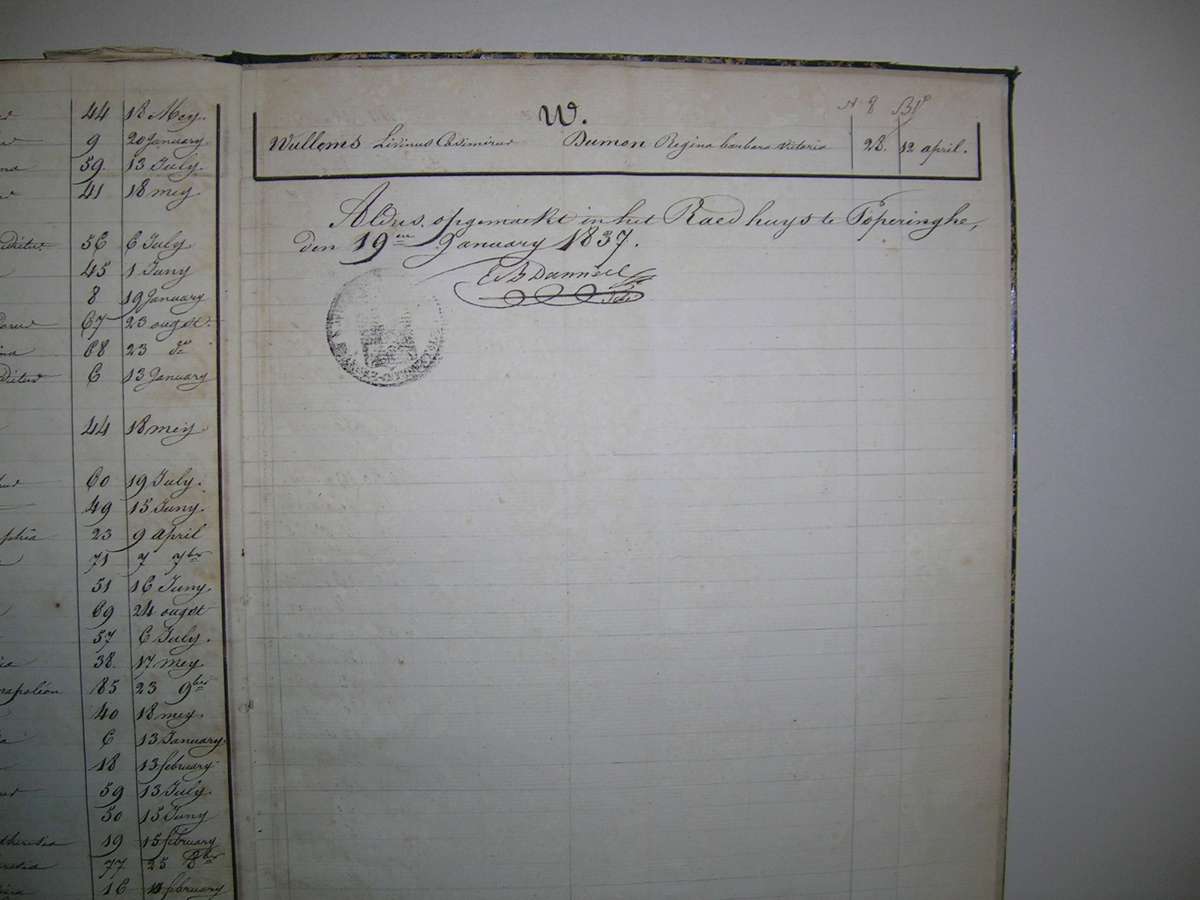 44 18 Mey.
9 20 January
59. 13 July.
41 18 mey
56 6 July
45 1 Juny
8 19 January
67 23 ougst.
68 23 do
6 13 January
44 18 mey
60 19 July.
49 15 Juny.
23 9 april
71 7 7ber
51 16 Juny.
69 24 ougst
57 6 July.
38. 17 mey
185 23 9ber
40 18 mey.
6 13 January
18 13 february
59 13 July.
50 15 Juny
19 15 february
77 25 8ber
16 10 february
W.
N 8
Wullems Livinus Casimirus Dumon Regina barbara victoria 28. 12 april.
Aldus opgemaekt in het Raedhuys te Poperinghe,
den 19en January 1837.